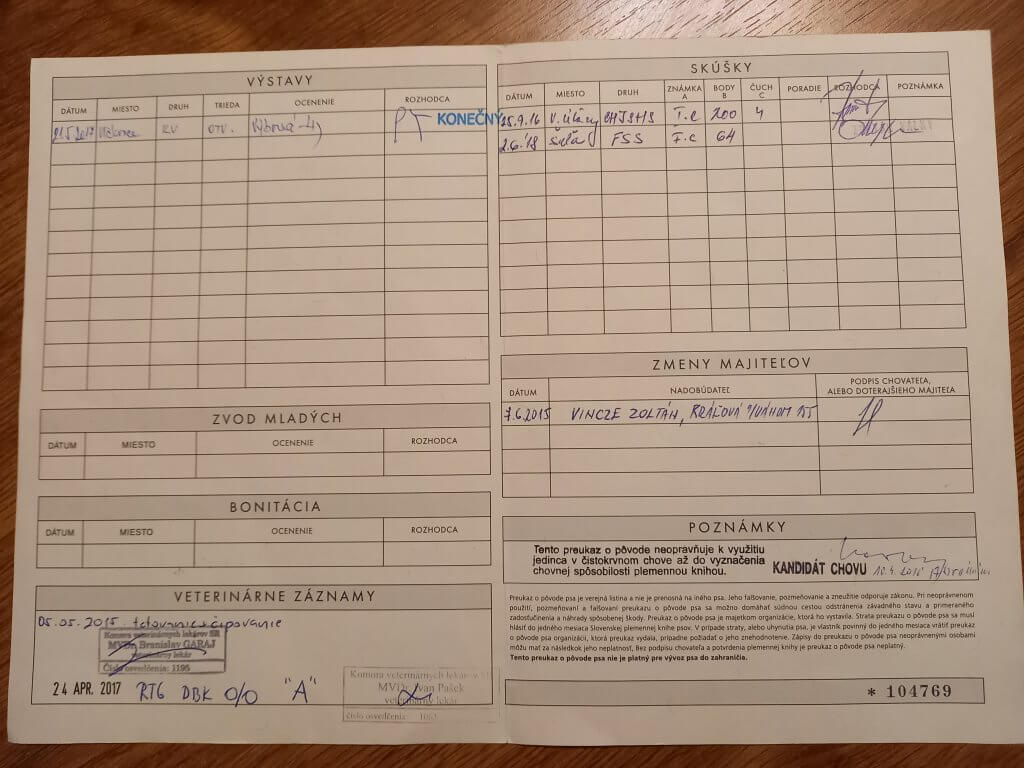 VÝSTAVY
DÁTUM MIESTO DRUH TRIEDA OCENENIE ROZHODCA
OTV. Výborná 4) KONEČNÝ
ZVOD MLADÝCH
DÁTUM MIESTO OCENENIE ROZHODCA
BONITÁCIA
DÁTUM MIESTO OCENENIE ROZHODCA
VETERINÁRNE ZÁZNAMY
05.05.2015 čipovanie
Komora veterinárnych lekárov SR
MVDr. Branislav GARAJ
veterinárny lekár
Číslo osvedčenia: 1195
24 APR. 2017 RTG DBK 0/0 "A"
Komora veterinárnych lekárov
MVDr. Ivan Pašek
veterinárny lekár
číslo osvedčenia:
SKÚŠKY
DÁTUM MIESTO DRUH ZNÁMKA A BODY B ČUCH C PORADIE ROZHODCA POZNÁMKA
25.9.16 I.c 200 4
2.6.18 FSS I.c 64
ZMENY MAJITEĽOV
DÁTUM NADOBÚDATEĽ PODPIS CHOVATEĽA, ALEBO DOTERAJŠIEHO MAJITEĽA
7.6.2015 VINCZE ZOLTÁN, KRÁĽOVÁ N/VÁHOM 155
POZNÁMKY
Tento preukaz o pôvode neoprávňuje k využitiu
jedinca v čistokrvnom chove až do vyznačenia
chovnej spôsobilosti plemennou knihou.
KANDIDÁT CHOVU
Preukaz o pôvode psa je verejná listina a nie je prenosná na iného psa. Jeho falšovanie, pozmeňovanie a zneužitie odporuje zákonu. Pri neoprávnenom
použití, pozmeňovaní a falšovaní preukazu o pôvode psa sa možno domáhať súdnou cestou odstránenia závadného stavu a primeraného
zadosťučinenia a náhrady spôsobenej škody. Preukaz o pôvode psa je majetkom organizácie, ktorá ho vystavila. Strata preukazu o pôvode psa sa musí
hlásiť do jedného mesiaca Slovenskej plemennej knihe psov. V prípade straty, alebo uhynutia psa, je vlastník povinný do jedného mesiaca vrátiť preukaz
o pôvode psa organizácii, ktorá preukaz vydala, prípadne požiadať o jeho znehodnotenie. Zápisy do preukazu o pôvode psa neoprávnenými osobami
môžu mať za následok jeho neplatnosť. Bez podpisu chovateľa a potvrdenia plemennej knihy je preukaz o pôvode psa neplatný.
Tento preukaz o pôvode psa nie je platný pre vývoz psa do zahraničia.
* 104769